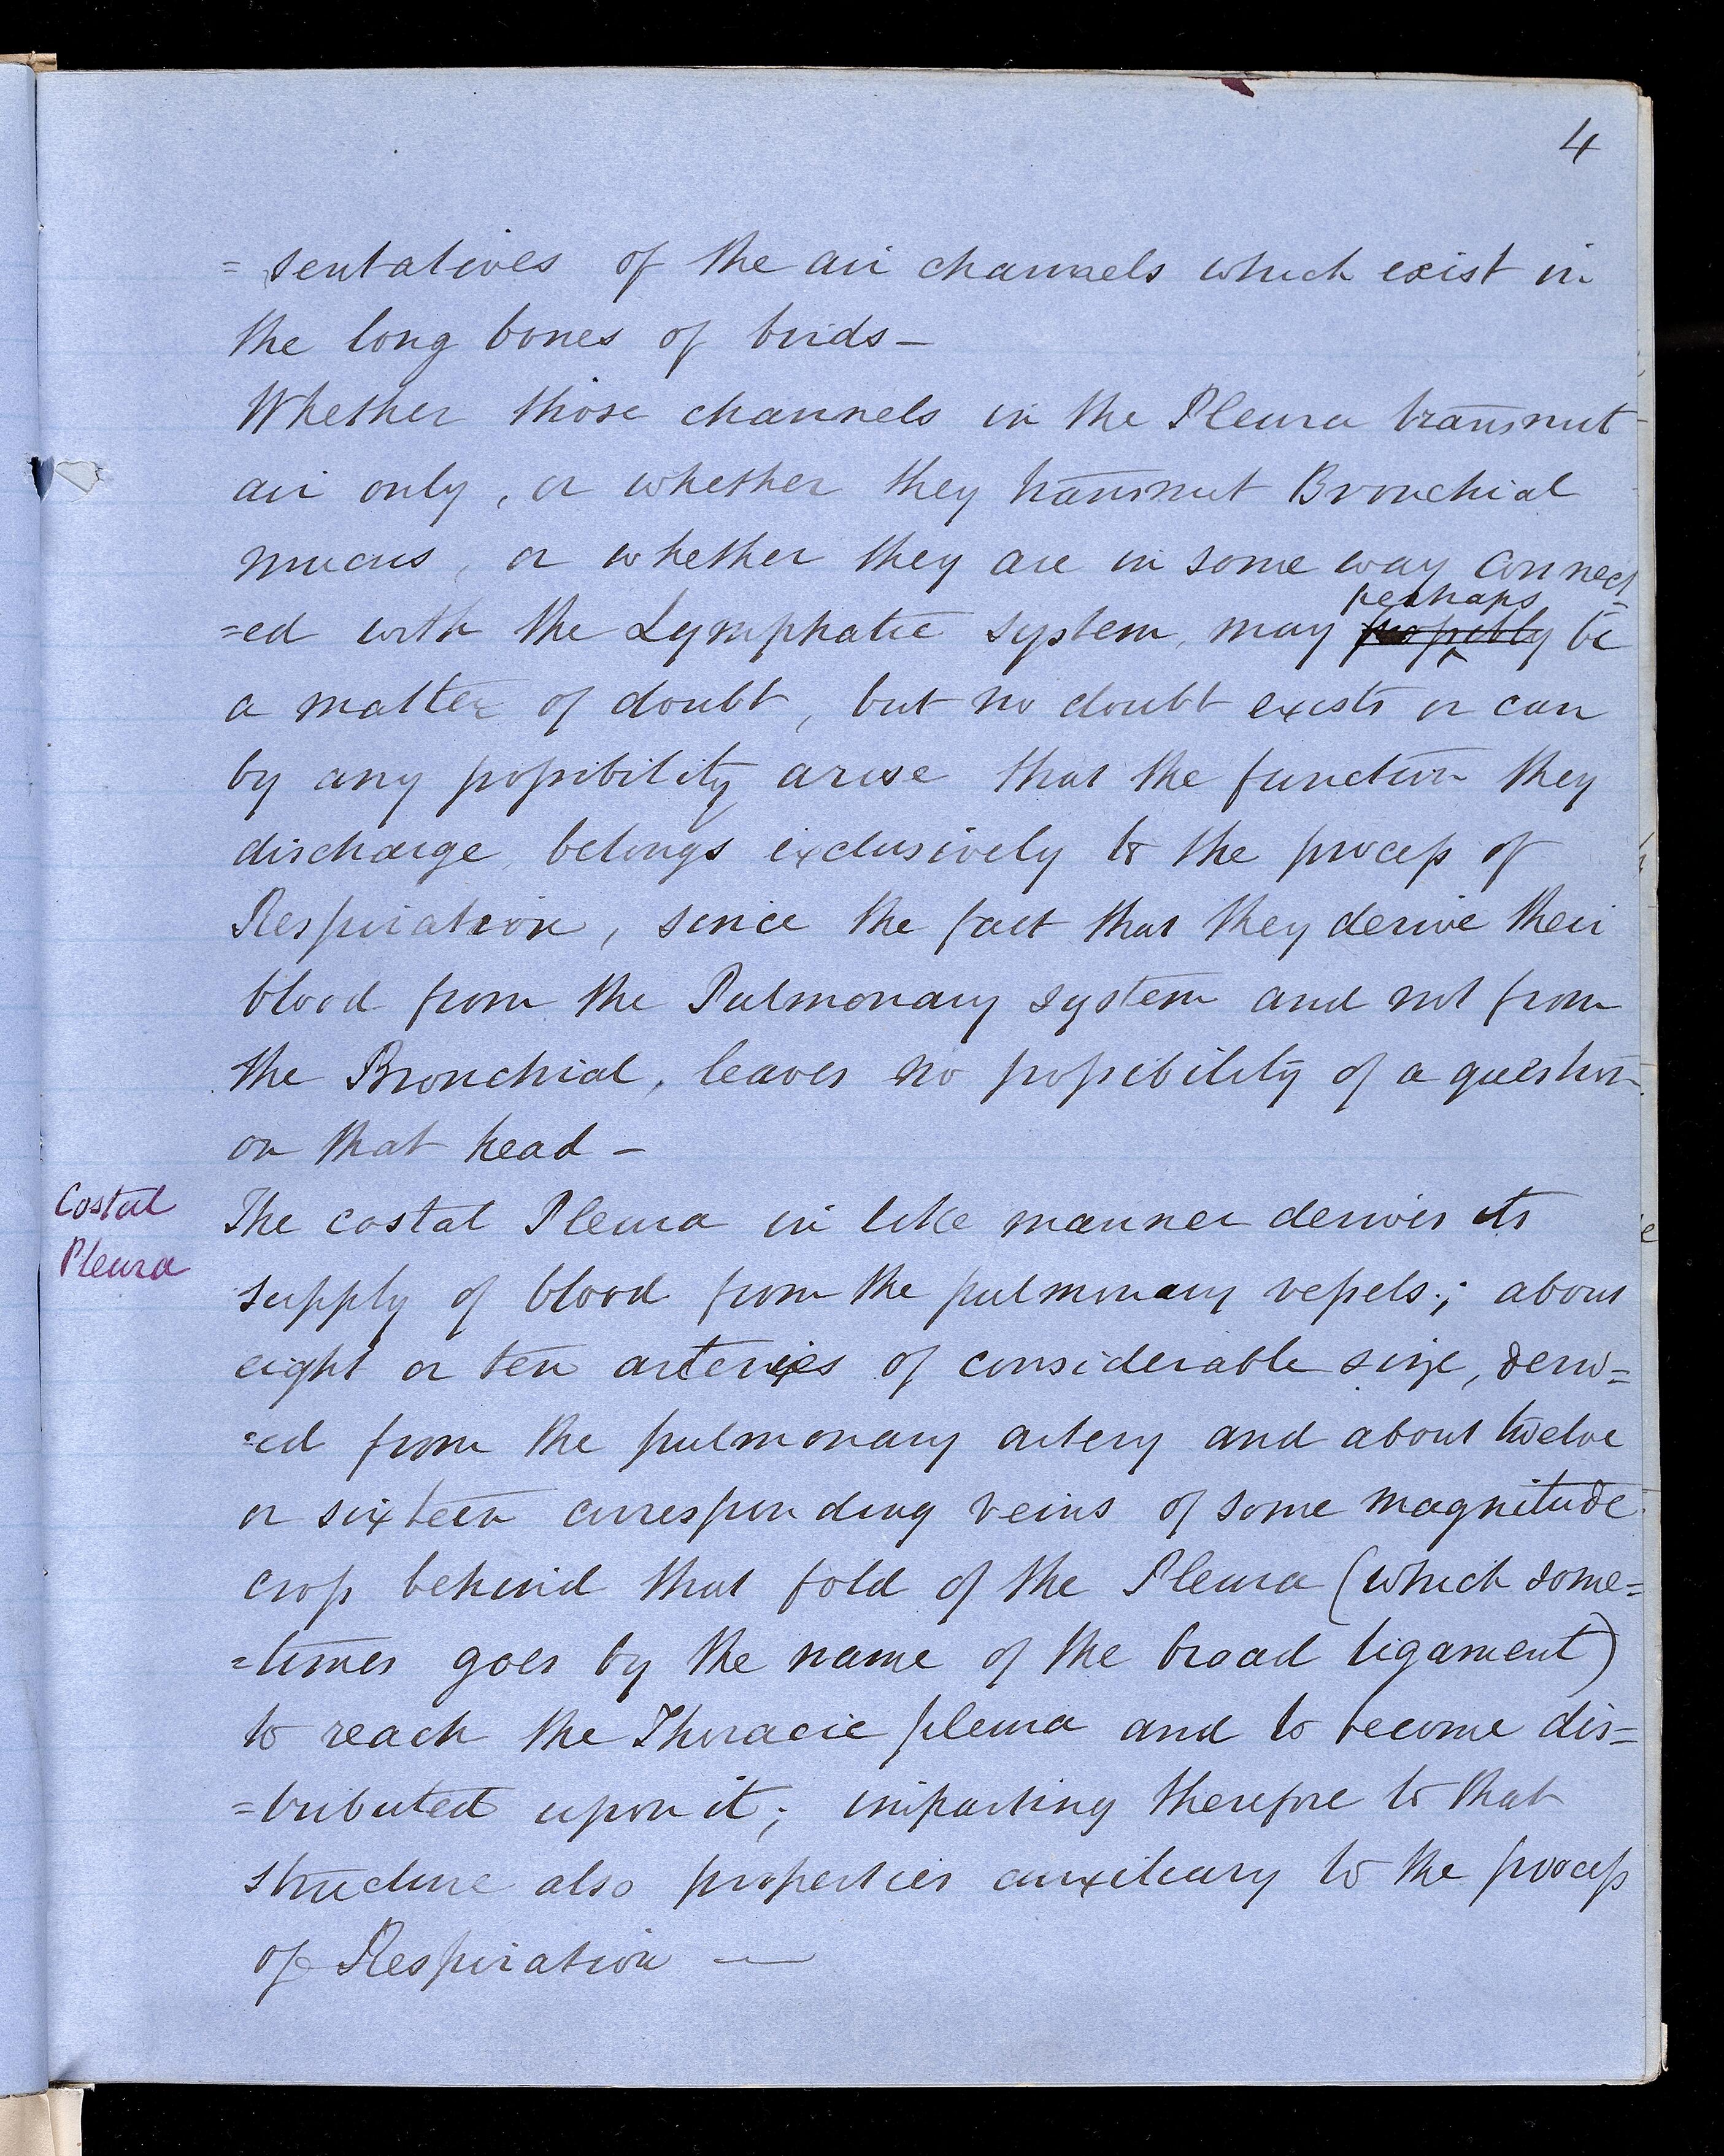 4
=sentatives of the air channels which exist in
the long bones of birds—
Whether those channels in the Pleura transmit
air only, or whether they transmit Bronchial
mucus, or whether they are in some way connect
perhaps
=ed with the Lymphatic system, may possibly be
a matter of doubt, but no doubt exists or can
by any possibility arise that the function they
discharge belongs exclusively to the process of
Respiration, since the fact that they derive their
blood from the Pulmonary system and not from
the Bronchial, leaves no possibility of a question
on that head—
Costal
Pleura
The costal Pleura in like manner derives its
supply of blood from the pulmonary vessels; about
eight or ten arteries of considerable size, deriv=
=ed from the pulmonary artery and about twelve
or sixteen corresponding veins of some magnitude
cross behind that fold of the Pleura (which some=
=times goes by the name of the broad ligament)
to reach the Thoracic pleura and to become dis=
=tributed upon it; imparting therefore to that
structure also properties auxiliary to the process
of Respiration —